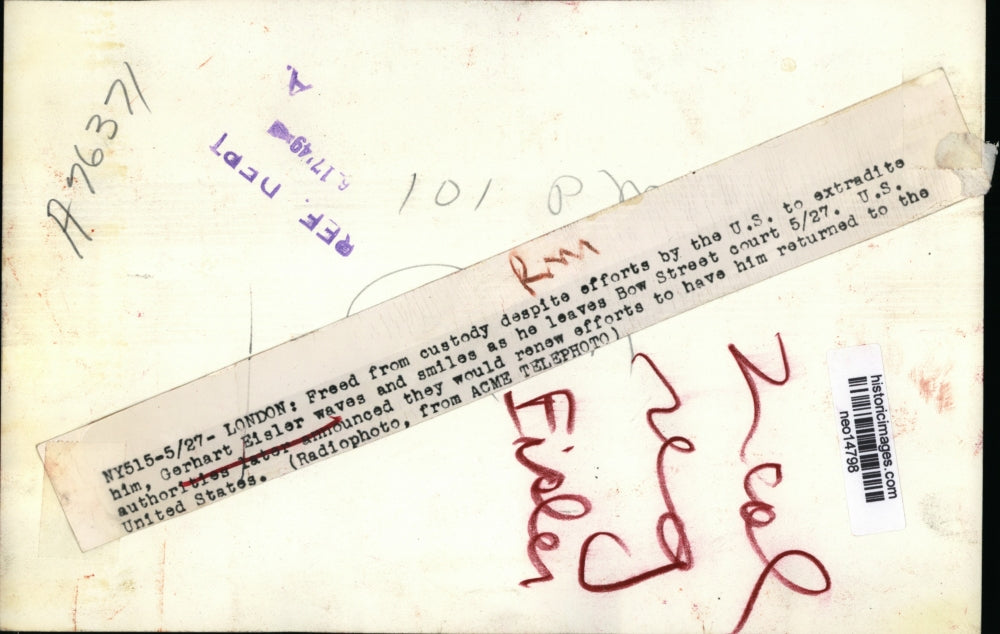 A76371
REF. DEPT
6.17'49
A.
101
NY515-5/27- LONDON: Freed from custody despite efforts by the U.S. to extradite
him, Gerhart Eisler waves and smiles as he leaves Bow Street court 5/27. U.S.
authorities later announced they would renew efforts to have him returned to the
United States. (Radiophoto, from ACME TELEPHOTO)
Eisler
historicimages.com
neo14798